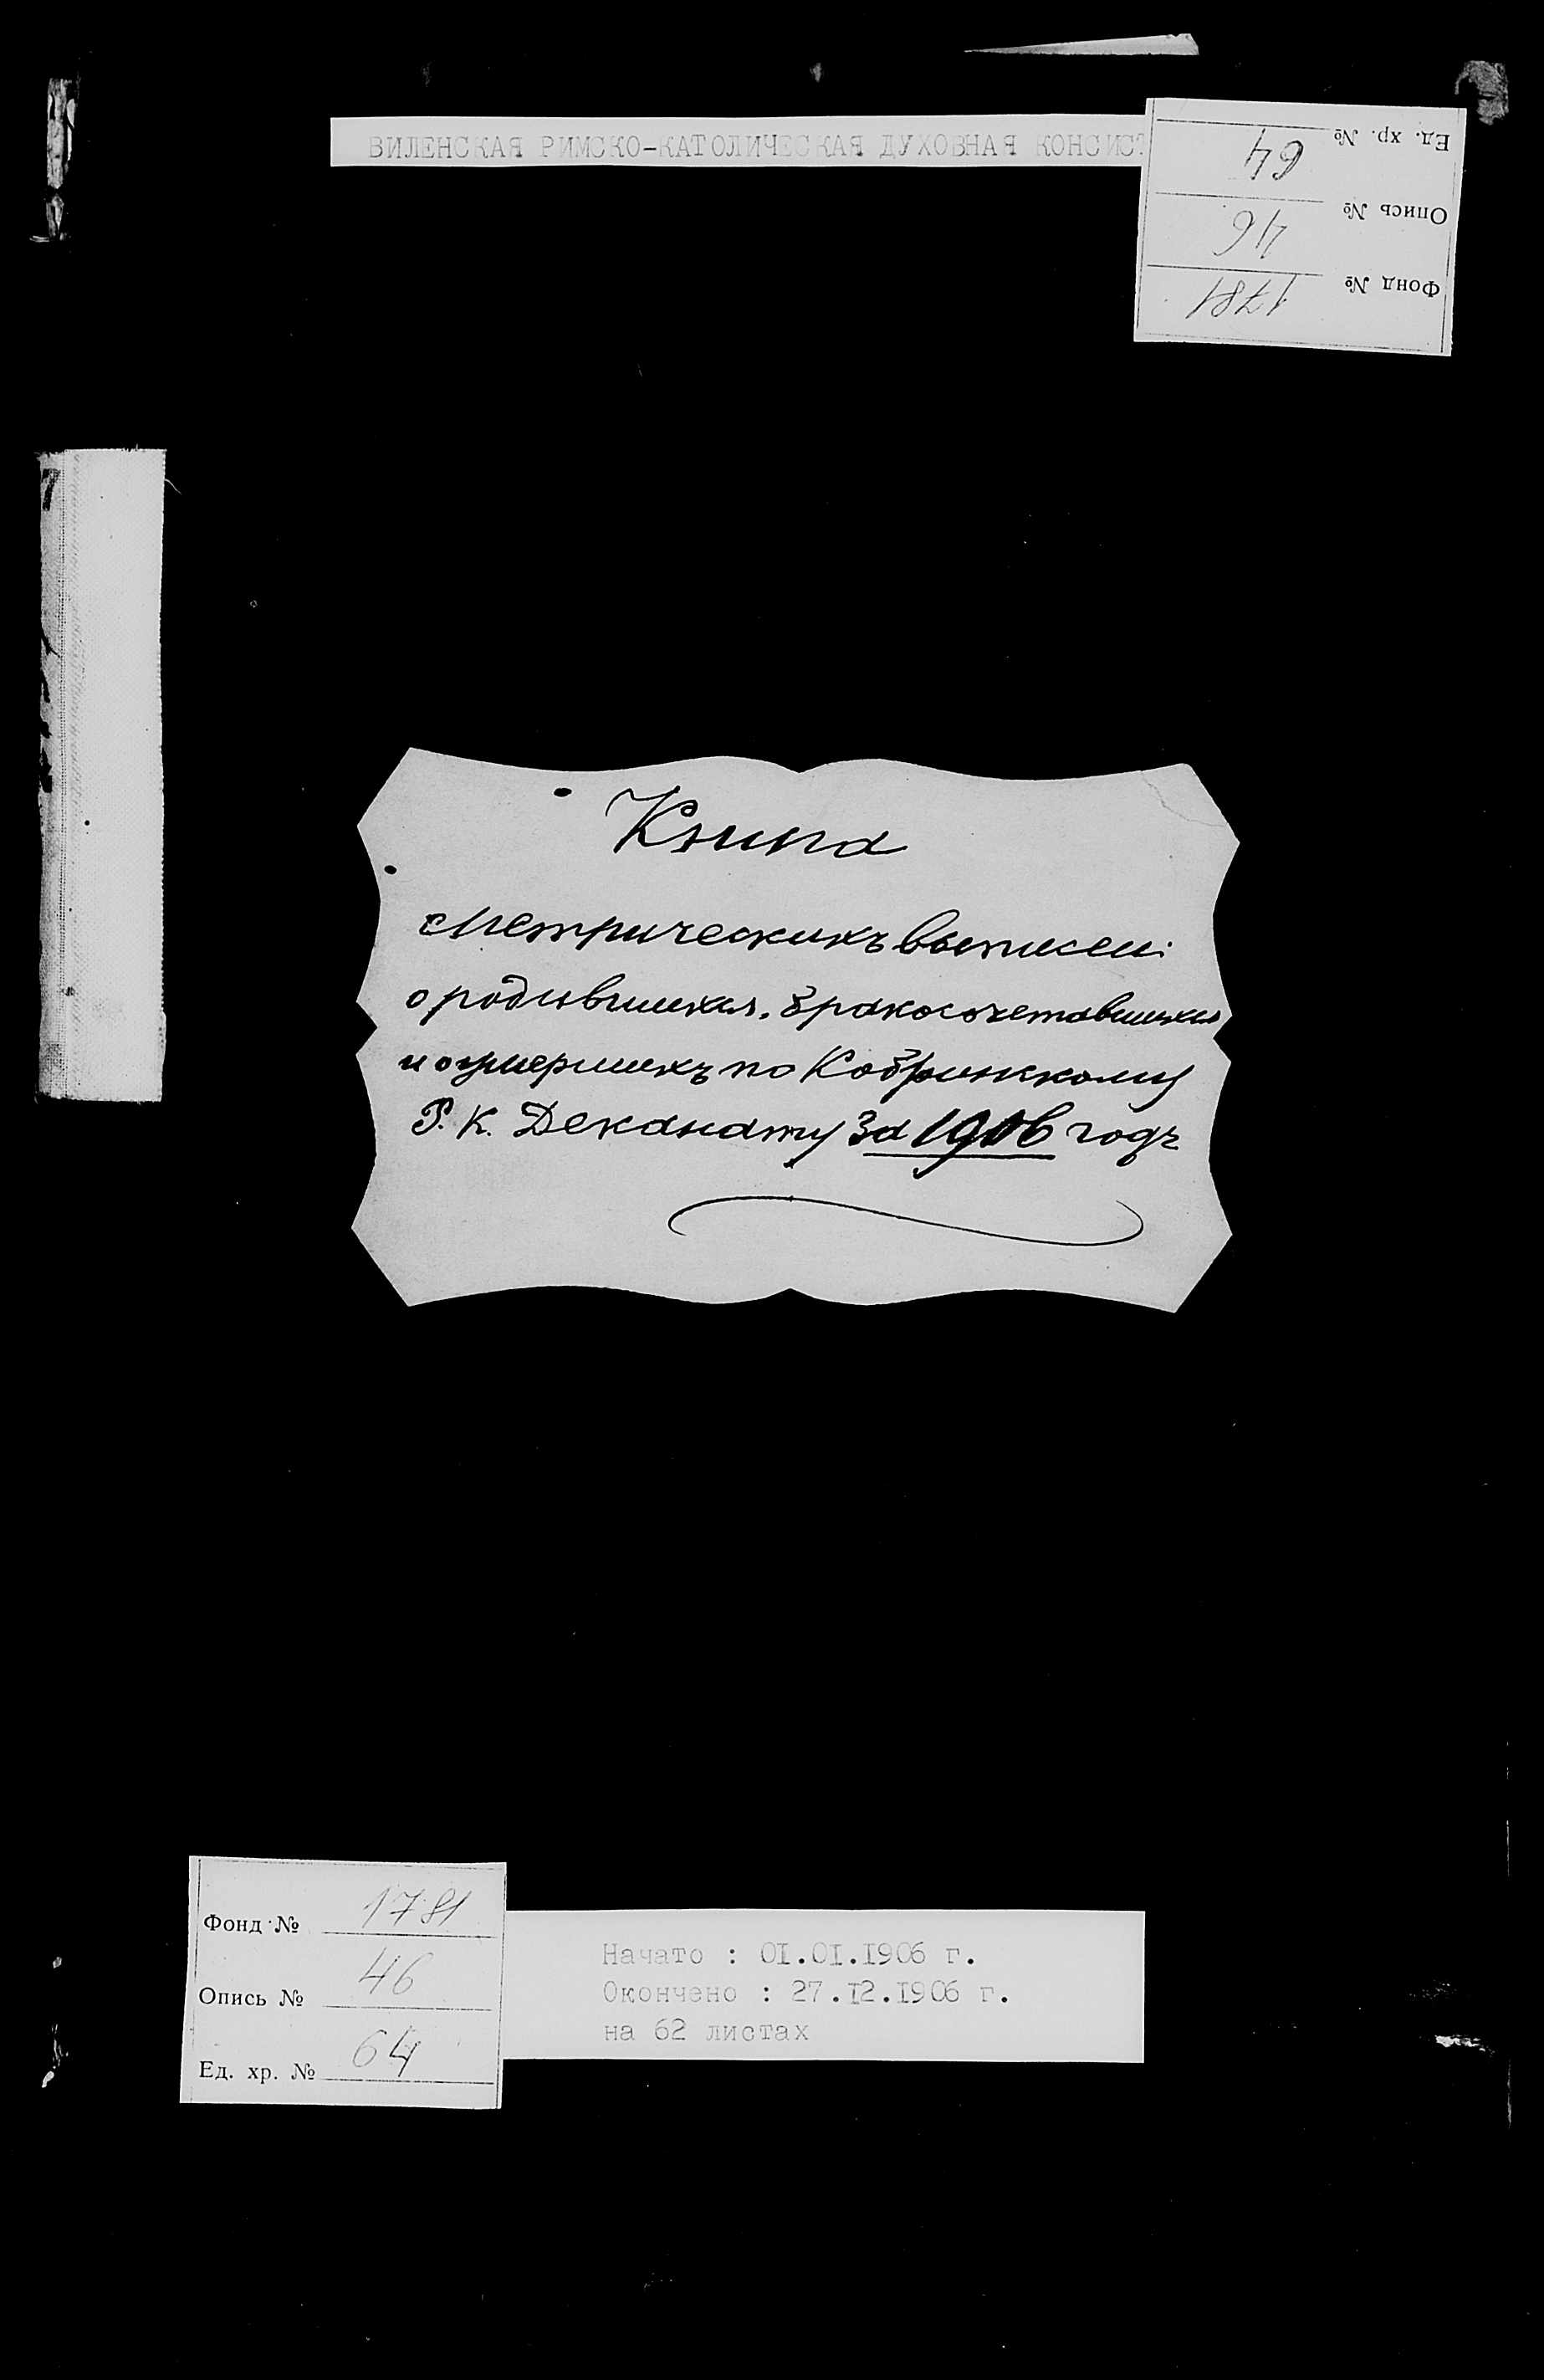 ВИЛЕНСКАЯ РИМСКО-КАТОЛИЧЕСКАЯ ДУХОВНАЯ КОНСИСТ
Ед. хр. № 64
Опись № 46
Фонд № 1781
7
Книга
Метрическихъ выписей
о родившихся, бракосочетавшихся
и о умершихъ по Кобринскому
Р. К. Деканату за 1906 годъ
Фонд № 1781
Опись № 46
Ед. хр. № 64
Начато : 01.01.1906 г.
Окончено : 27.12.1906 г.
на 62 листах